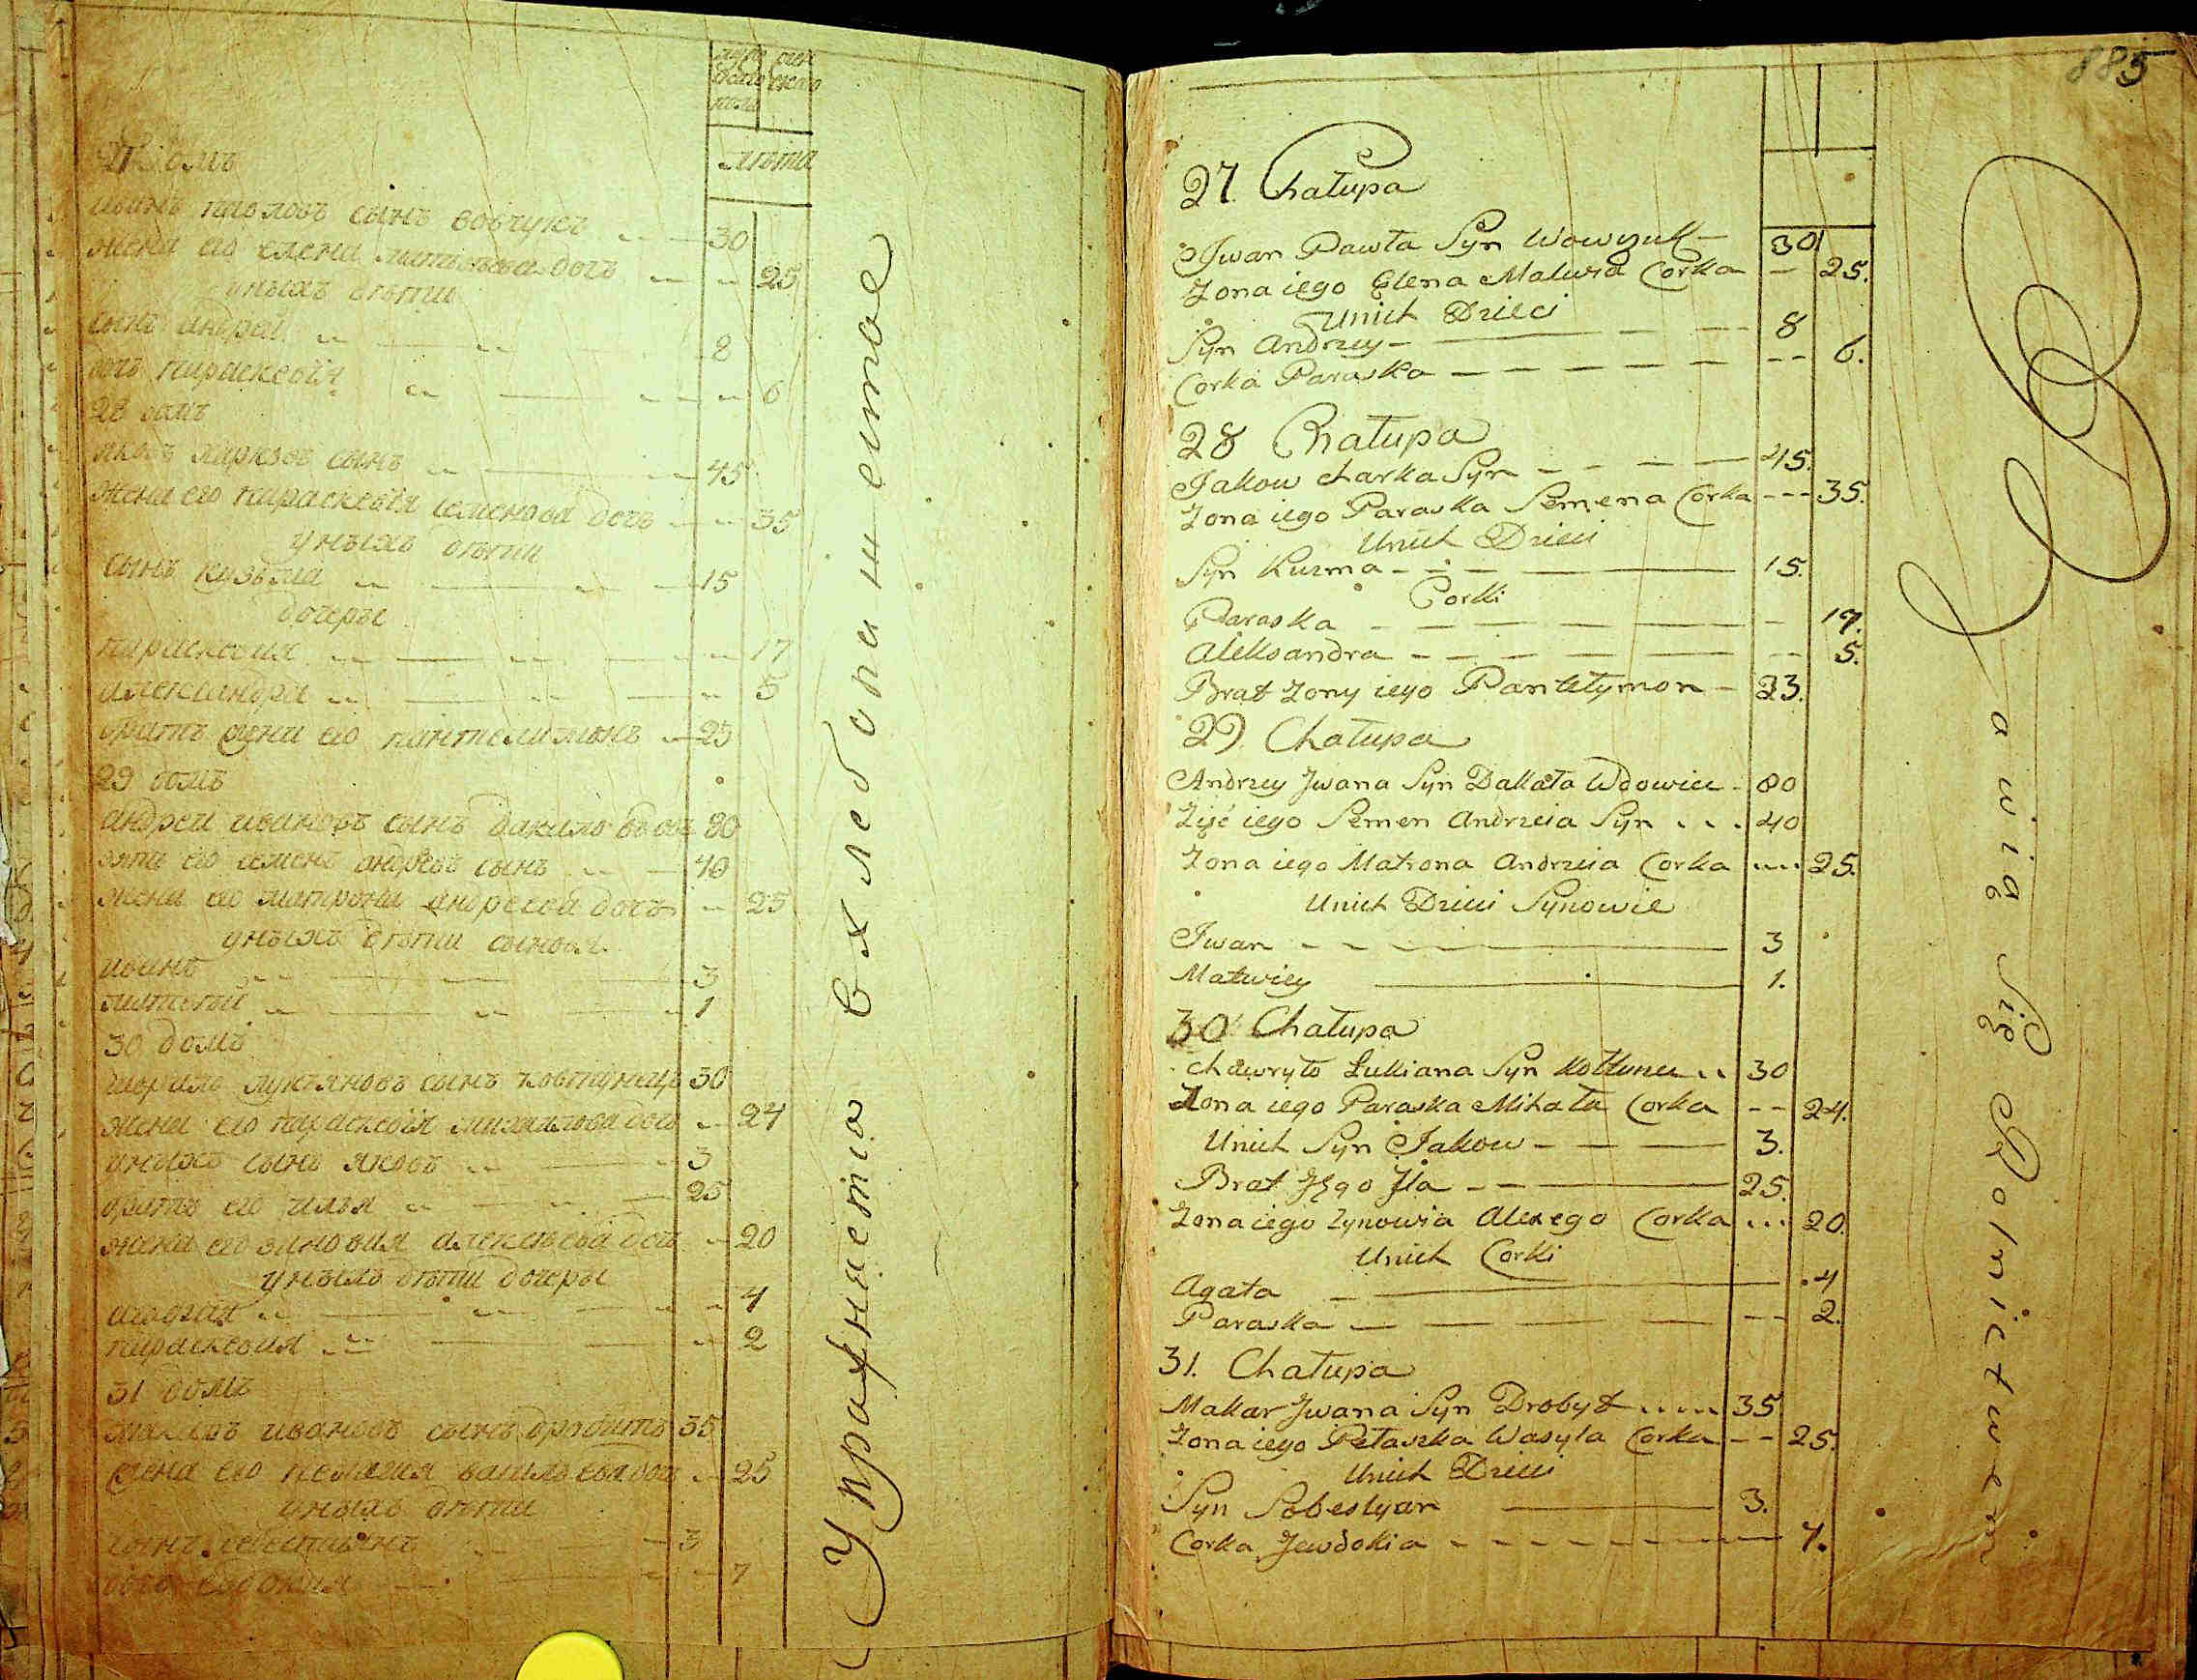 лѣта
27 домъ
иванъ павловъ сынъ вовчукъ 30
жена его елена матвѣева дочь 25
у ныхъ дѣти
сынъ андрей 8
дочь параскевія 6
28 домъ
яковъ марковъ сынъ 45
жена его параскевія семенова дочь 35
у ныхъ дѣти
сынъ кузьма 15
дочеры
параскевия 17
александра 5
братъ жены его пантелимонъ 23
29 домъ
андрей ивановъ сынъ 80
его семенъ андреевъ сынъ 40
жена его матрона андреева дочь 25
у ныхъ дѣти сыновя
иванъ 3
матвѣй 1
30 домъ
лукяновъ сынъ ковтунецъ 30
жена его параскевія михайлова дочь 24
у нихъ сынъ яковъ 3
братъ его илья 25
жена его зиновия алексѣева дочь 20
у ныхъ дѣти дочеры
агафия 4
параскевия 2
31 домъ
макаръ ивановъ сынъ дробитъ 35
жена его пелагия василева дочь 25
у ныхъ дѣти
сынъ себестиянъ 3
дочь евдокия 7
Упражняется в хлебопашестве
885
27. Chałupa
Jwan Pawła Syn Wowczuk 30
Zona iego Elena Matwia Corka 25.
Unich Dzieci
Syn Andrzey 8
Corka Paraska 6.
28 Chałupa
Jakow Marka Syn 45.
Zona iego Paraska Semena Corka 35.
Unich Dzieci
Syn Kuzma 15.
Corki
Paraska 17.
Aleksandra 5.
Brat Zony iego Pantelymon 23.
29. Chałupa
Andrzey Jwana Syn Dakała Wdowiec 80
Zięć iego Semen Andrzeia Syn 40
Zona iego Matrona Andrzeia Corka 25.
Unich Dzieci Synowie
Jwan 3
Matwiey 1.
30 Chałupa
Hawryło Łukiana Syn 30
Zona iego Paraska Mihała Corka 24.
Unich Syn Jakow 3.
Brat Jego Jla 25.
Zona iego Zynowia Alexego Corka 20.
Unich Corki
Agata 4
Paraska 2.
31. Chałupa
Makar Jwana Syn Drobyt 35
Zona iego Pelaszka Wasyla Corka 25.
Unich Dzieci
Syn Sebestyan 3.
Corka Jewdokia 7.
Bawią Się Rolnictwem